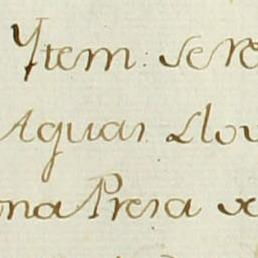 Ytem: se re
Aguas Llov
na Presa